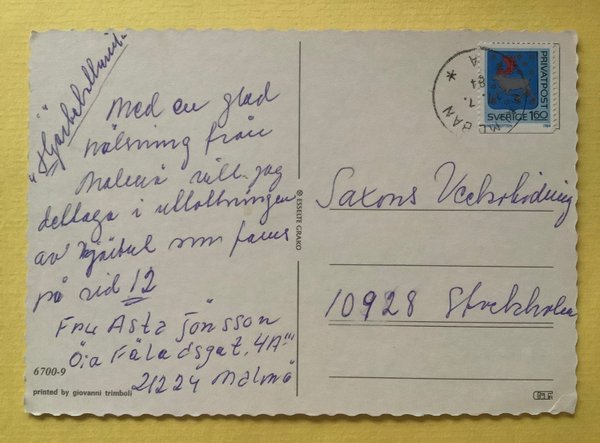 Med en glad
hälsning från
Malmö vill jag
deltaga i utlottningen
av som fanns
på sid 12
Fru Asta Jönsson
Ö:a Fäladsgat. 4A'''
21224 Malmö
6700-9
printed by giovanni trimboli
® ESSELTE GRAKO
PRIVATPOST
SVERIGE 160
Saxons Veckotidning
10928 Stockholm